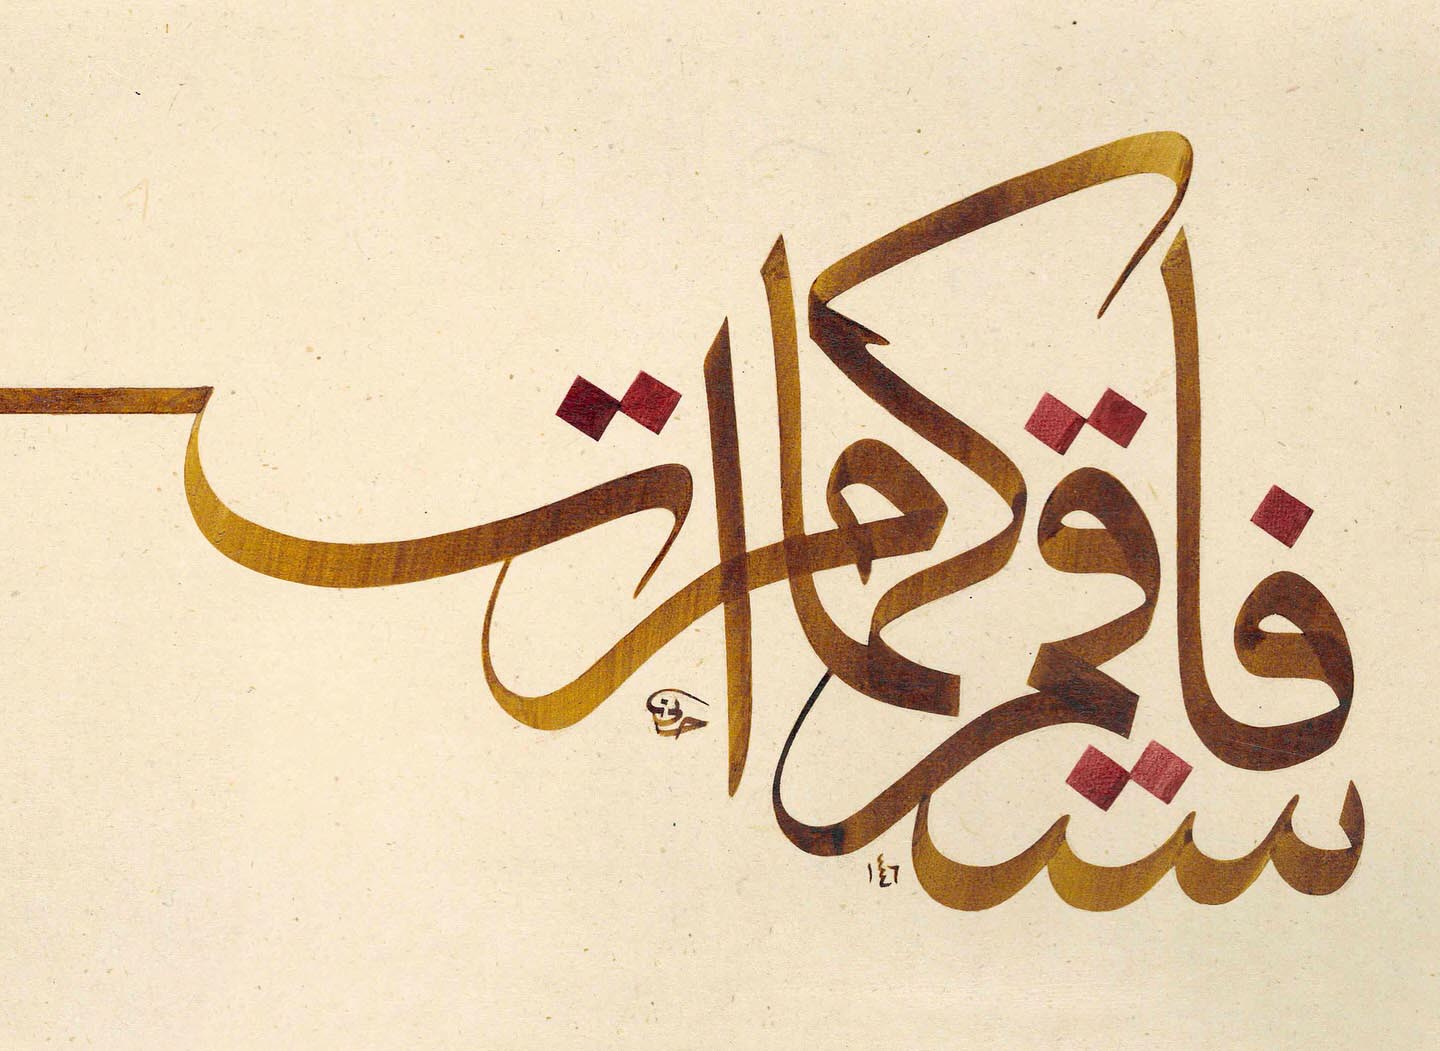 فاستقم كما امرت
١٤٤٦